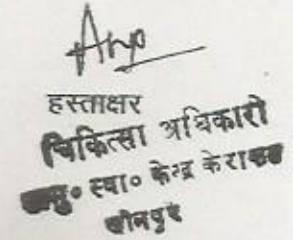 हस्ताक्षर
चिकित्सा अधिकारी
स्वा० केन्द्र केराकत
जौनपुर